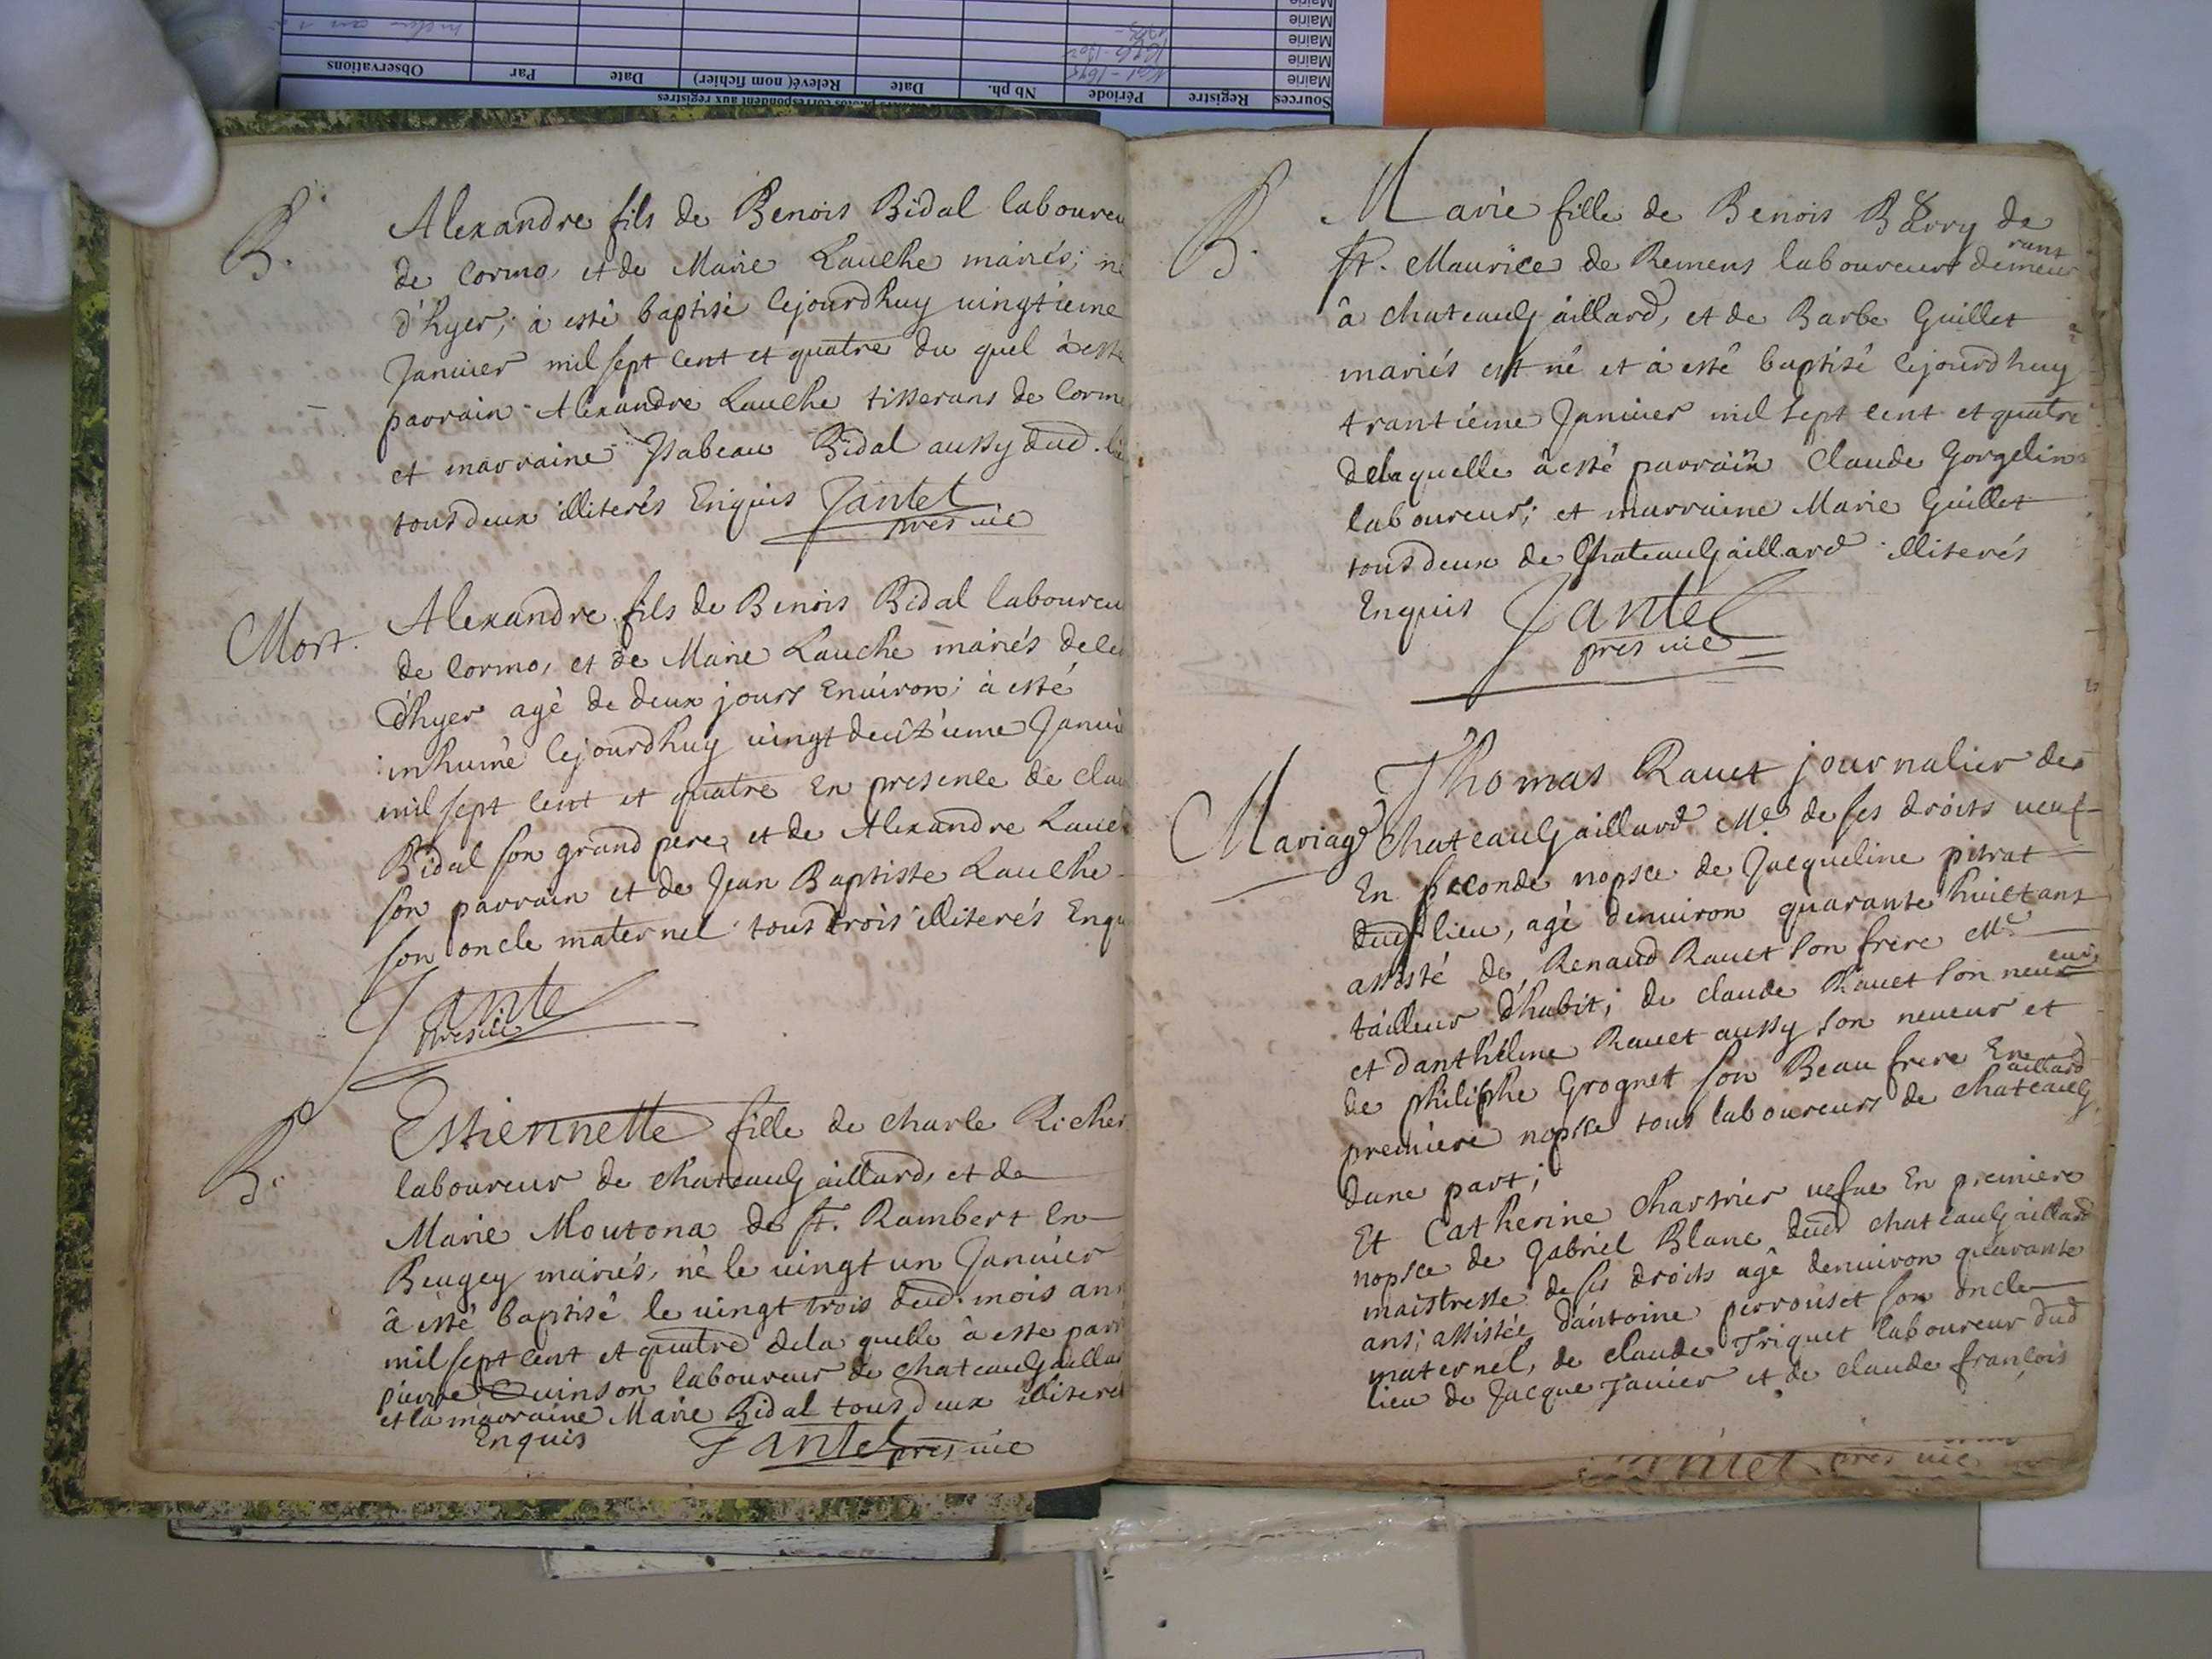 B.
Alexandre fils de Benois Bidal laboureu
de Cormo, et de Marie Lauche mariés; né
d'hyer; à esté baptisé cejourdhuy vingtieme
Januier mil sept cent et quatre du quel à esté
parrain Alexandre Lauche tisserans de Cormo
et marraine Isabeau Bidal aussy dud. lie
tous deux illiterés Enquis Jantet
pres vic
Mort.
Alexandre fils de Benois Bidal laboureu
de Cormo, et de Marie Lauche mariés decedé
d'hyer agé de deux jours Enuiron; à esté
inhumé cejourdhuy vingt deuzieme Januie
mil sept cent et quatre En presence de Clau
Bidal son grand pere, et de Alexandre Lauch
son parrain et de Jean Baptiste Lauche
son oncle maternel tous trois illiterés Enqu
Jante
pres vic
B.
Estiennette fille de Charle Richer
laboureur de Chateaugaillard, et de
Marie Moutona de St. Rambert En
Beugey mariés, né le vingt un Januier
à esté baptisé le vingt trois dud. mois an
mil sept cent et quatre dela quelle à esté parr
pierre Quinson laboureur de Chateaugaillar
et la marraine Marie Bidal tous deux illiteré
Enquis Jantet pres vic
B.
Marie fille de Benois Barry de
St. Maurice de Remens laboureur demeurans
â Chateaugaillard, et de Barbe Guillet
mariés est né et à esté baptisé cejourdhuy
trantiéme Januier mil sept cent et quatre
delaquelle à esté parrain Claude Gorgelin
laboureur; et marraine Marie Guillet
tous deux de Chateaugaillard illiterés
Enquis Jantet
pres vic
Mariage
Thomas Rauet journalier de
Chateaugaillard Me de ses droits ueuf
En seconde nopsce de Jacqueline pitrat
dud lieu, agé denuiron quarante huict ans
assisté de Renaud Rauet son frere Me
tailleur d'habit; de claude Rauet son neueur
et danthelme Rauet aussy son neueur et
de philiphe Grognet son Beau frere En
premiere nopsce tous laboureurs de Chateaugaillard
dune part;
Et Catherine Chartrier uefue En premiere
nopsce de Gabriel Blanc dud Chateaugaillard
maistresse de ses droits agé denuiron quarante
ans; assistée dantoine perrouset son oncle
maternel, de claude Triquet laboureur dud
lieu de Jacque Janier et de claude françois
pres vic
Sources Registre Période Nb ph. Date Relevé (nom fichier) Date Par Observations
Mairie
Mairie
Mairie
Mairie